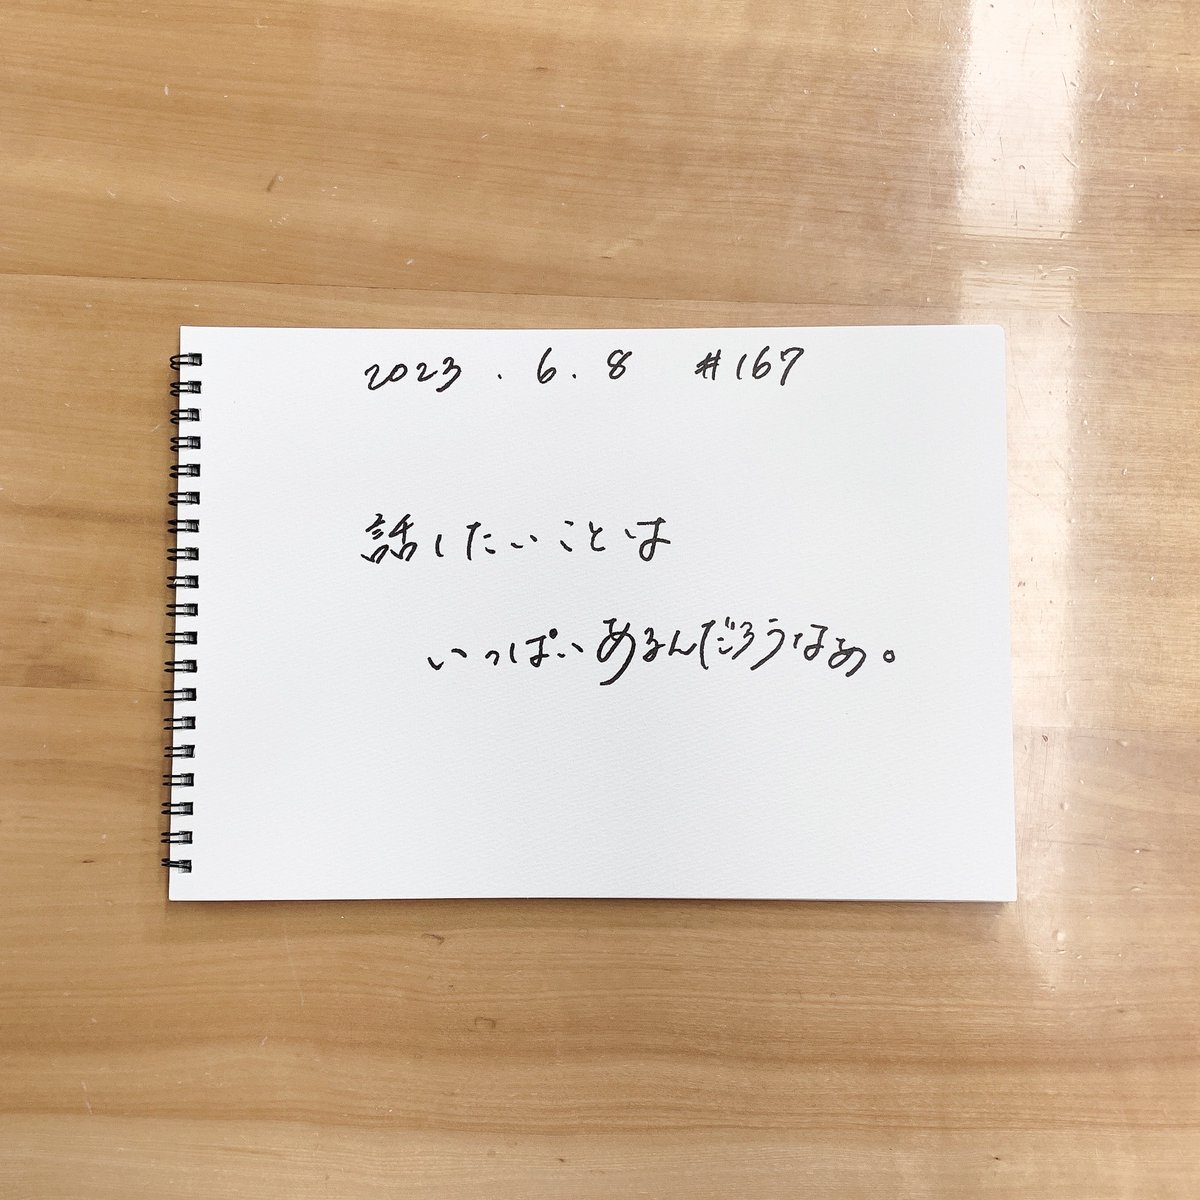 2023.6.8 #167
話したいことは
いっぱいあるんだろうなぁ。